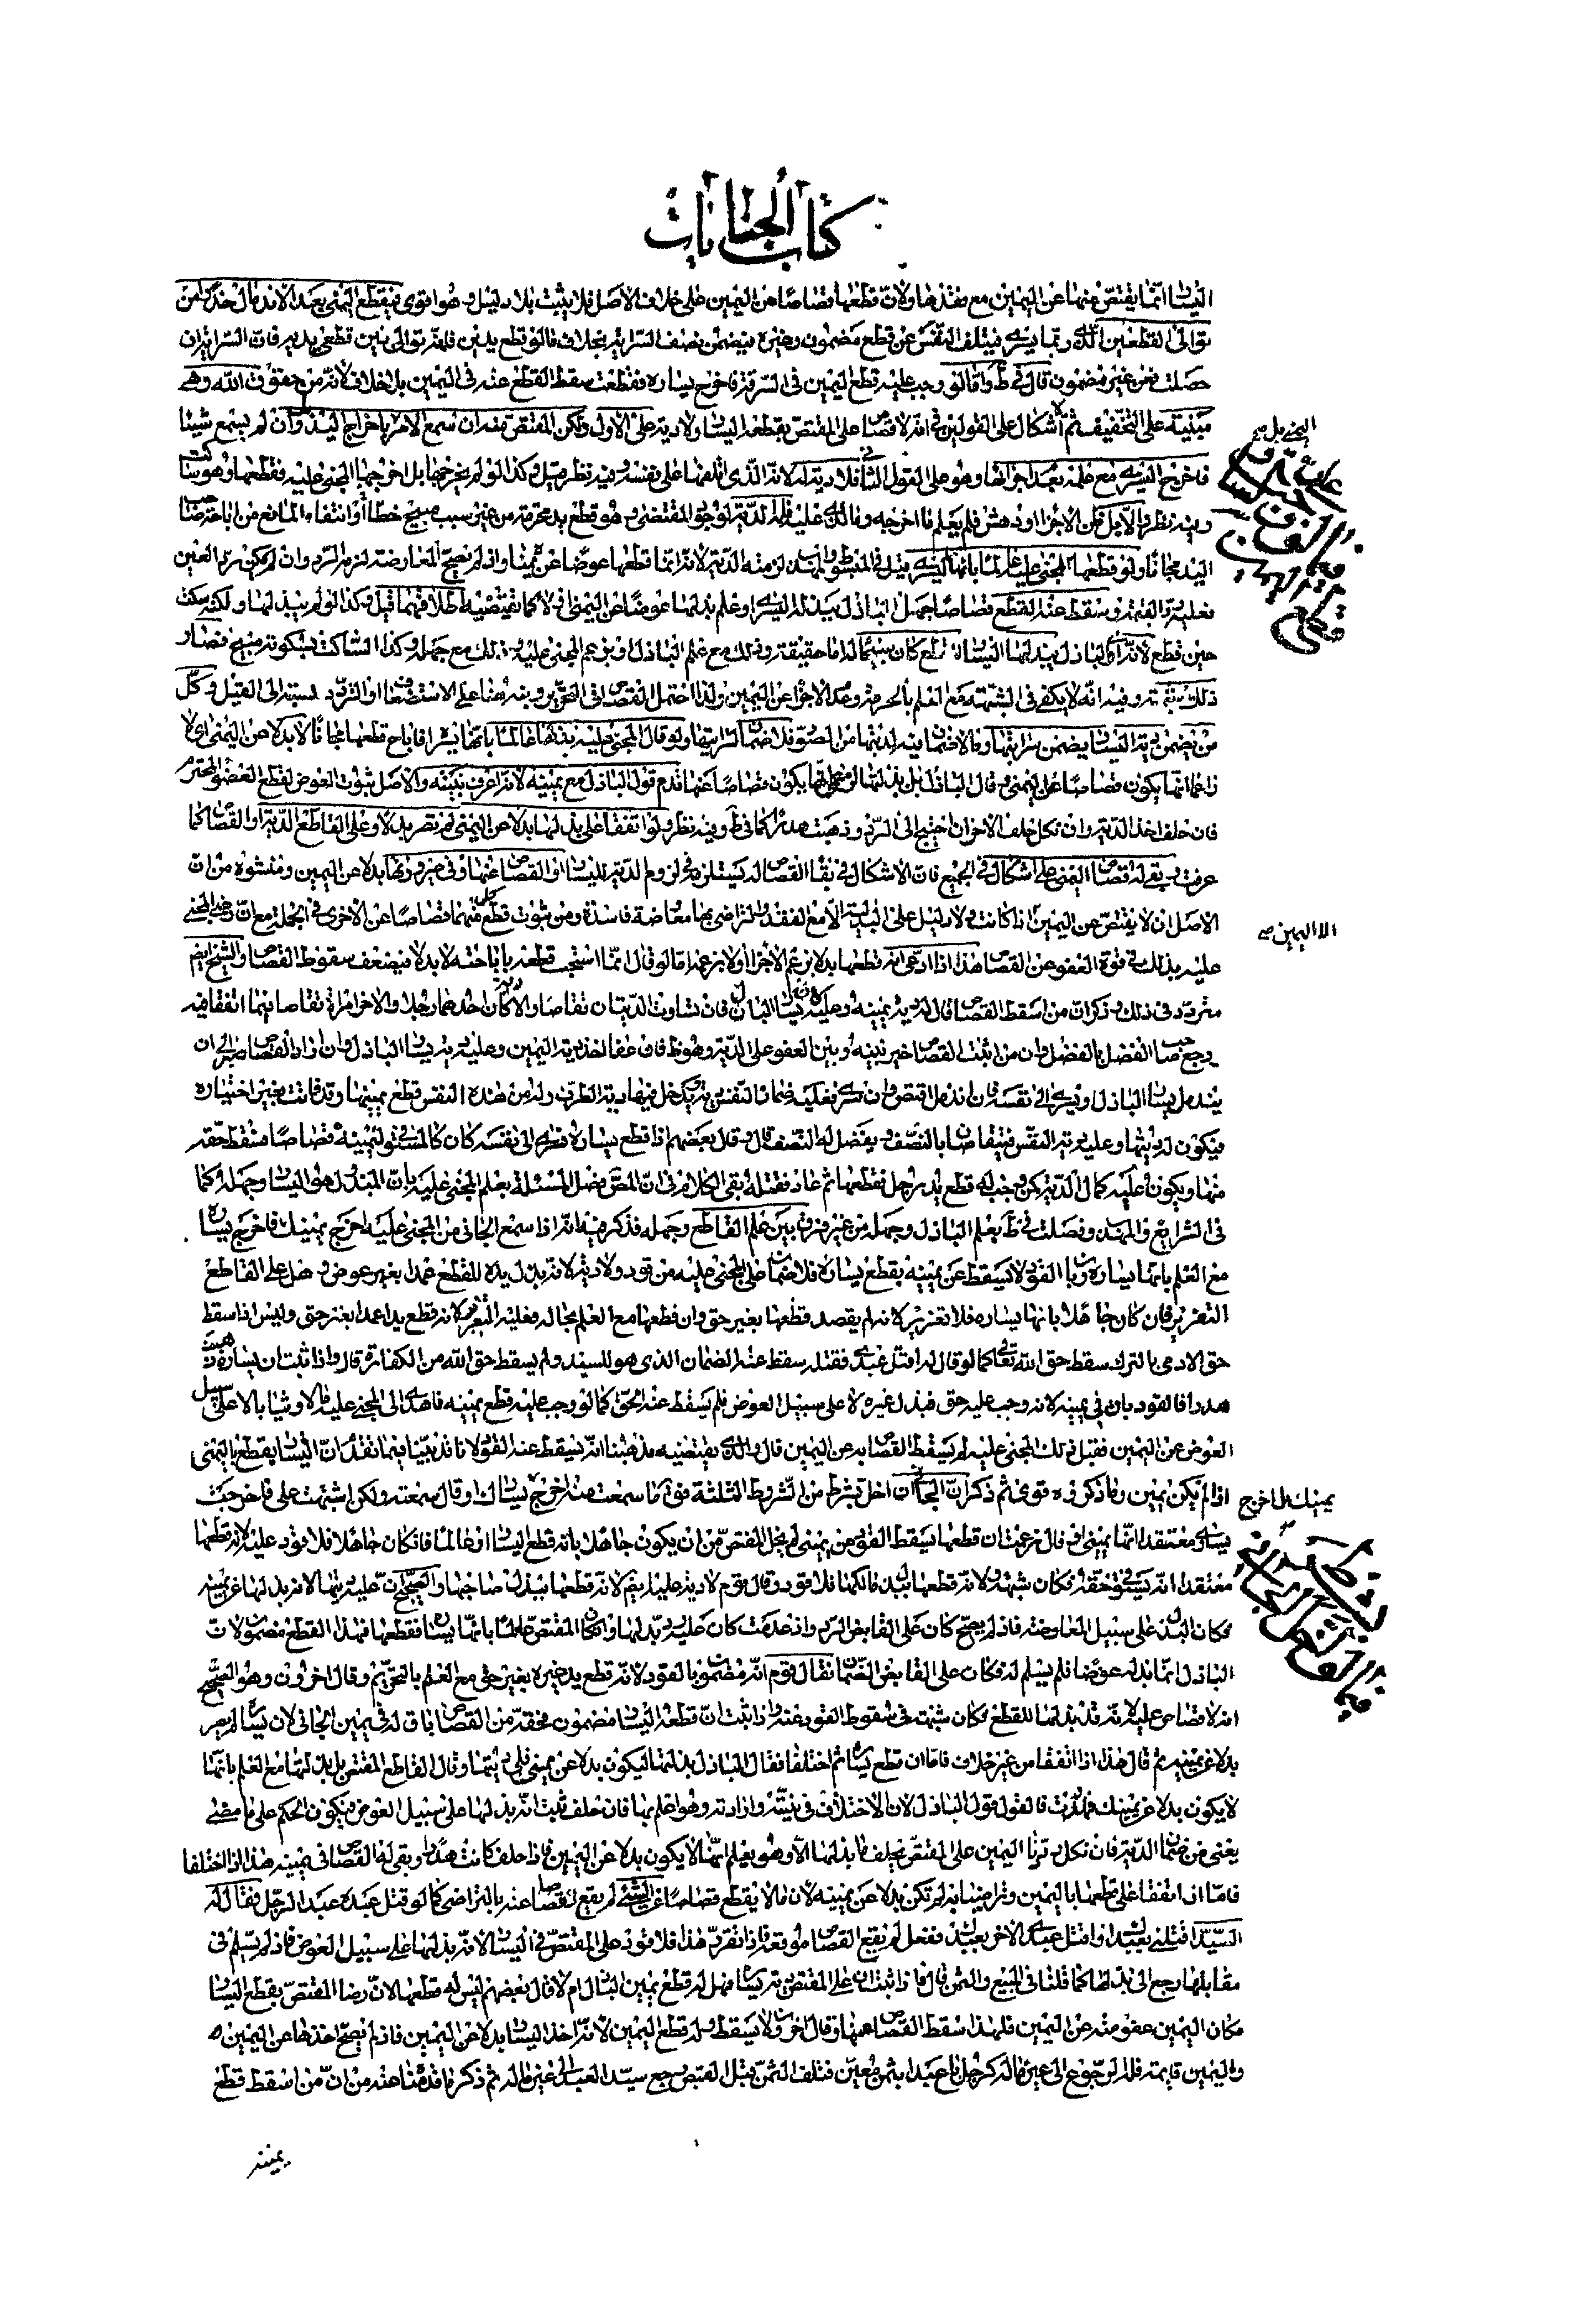 كتاب الجنايات
اليسار انما يقتص منها عن اليمين مع فقدها ولان قطعها قصاصا عن اليمين على خلاف الاصل فلا يثبت بلا دليل وهو اقوى فيقطع اليمنى بعد الاندمال حذرا من
توالى القطعين الذى ربما يسرى فيتلف النفس عن قطع مضمون وغيره فيضمن نصف السراية بخلاف ما لو قطع يدين فلم توالى بين قطعى يديه فان السرايتان
حصلت عن غير مضمون قال في ط واما لو وجب عليه قطع اليمين في السرقة فاخرج يساره فقطعت سقط القطع عنه في اليمين بلا خلاف لانه من حقوق الله وهى
مبنية على التخفيف ثم لا اشكال على القولين في انه لا قصاص على المقتص بقطعه اليسار ولا دية على الاول ولكن المقتص منه ان سمع الامر باخراج اليمنى وان لم يسمع شيئا
فاخرج اليسرى مع علمه بعدم اجزائها وهو على القول الثاني فلا دية له لانه الذى اتلفها على نفسه وفيه نظر قيل وكذا لو لم يخرجها بل اخرجها المجنى عليه فقطعها وهو ساكت
وفيه نظر والا بل ظن الاجزاء او دهش فلم يعلم ما اخرجه وما الذى عليه فله الدية لوجود المقتضى وهو قطع يد محترمة من غير سبب مبيح خطأ وانتفاء المانع من اباحة صاحب
اليد مجانا ولو قطعها المجنى عليه عالما بانها اليسرى قيل في المبسوط والمهذب لزمته الدية لانه انما قطعها عوضا عن يمينها واذ لم تصح المعاوضة لزم الرد وان لم يمكن رد العين
فعليه رد القيمة وسقط عنه القطع قصاصا جهل الباذل ببذله اليسرى او علم بذلها عوضا عن اليمنى او لا كما يقتضيه اطلاقهما قيل وكذا لو لم يبذلها ولكنه سكت
حين قطع لانه اى الباذل ببذلها اليسار للقطع كان شبهة اما حقيقة وذلك مع علم الباذل او بزعم المجنى عليه وذلك مع جهله وكذا الساكت فسكوته مبيح فصار
ذلك شبهة وفيه انه لا يكفى في الشبهة مع العلم بالحرمة وعدم الاجزاء عن اليمين ولذا احتمل القصاص في التحرير وبنى هنا على الاستضعاف او التردد لنسبته الى القيل وكل
من يضمن دية اليسار يضمن سرايتها وما لا ضمان فيه لديتها من الصور فلا ضمان لسرايتها ولو قال المجنى عليه بذلها عالما بانها يسرى فاباح قطعها مجانا لا بدلا عن اليمنى اى لا
زاعما انها يكون قصاصا عن اليمنى وقال الباذل بل بذلتها لزعمى انها يكون قصاصا عنها قدم قول الباذل مع يمينه لانه اعرف بنيته والاصل ثبوت العوض لقطع العضو المحترم
فان حلف اخذ الدية وان نكل حلف الاخر ان احتيج الى الرد وذهبت هدرا كما في ط وفيه نظر ولو اتفقا على بذلها بدلا عن اليمنى لم تصر بدلا وعلى القاطع الدية او القصاص كما
عرفت ويبقى له قصاص اليمنى على اشكال في الجميع فان الاشكال في بقاء القصاص له يستلزمه في لزوم الدية لليسار او القصاص عنها وفي صيرورتها بدلا عن اليمين ومنشؤه من ان
الاصل ان لا يقتص عن اليمين اذا كانت ولا دليل على البدلية الا مع الفقد والتراضى بها معاوضة فاسدة ومن ثبوت قطع كل منهما قصاصا عن الاخرى في الجملة مع ان رضى المجنى
عليه بذلك في قوة العفو عن القصاص هذا اذا ادعى انه قطعها بدلا بزعم الاجزاء ولا بزعمه اما لو قال انما استبحت قطعه باباحته لا بدلا فيضعف سقوط القصاص والشيخ ايضا
متردد في ذلك وذكر ان من اسقط القصاص قال له دية يمينه وعليه دية يسار الباذل فان تساوت الديتان تقاصا والا كان احدهما رجلا والاخر امراة تقاصا فيما اتفقا فيه
ورجع صاحب الفضل بالفضل وان من اثبت القصاص خير بينه وبين العفو على الدية وهو ظ فان عفا اخذ دية اليمين وعليه دية يسار الباذل وان اراد القصاص صبر الى ان
يندمل يسار الباذل او يسرى الى نفسه فان اندمل اقتص وان سرى فعليه ضمان النفس دية يدخل فيها دية الطرف وله من هذه النفس قطع يمينها وقد فاتت بغير اختياره
فيكون له ديتها وعليه دية النفس فيتقاصان بالنصف ويفضل له النصف قال وقال بعضهم اذا قطع يساره فسرى الى نفسه كان كالمستوفى ليمينه قصاصا فسقط حقه
منها ويكون عليه كمال الدية كمن وجب له قطع يد رجل فقطعها ثم عاد فقتله بقى الكلام في ان المص فصل المسئلة بعلم المجنى عليه بان المبذول هو اليسار وجهله كما
في الشرايع والمهذب وفصلت في ط بعلم الباذل وجهله من غير فرق بين علم القاطع وجهله فذكر فيه انه اذا سمع الجانى من المجنى عليه اخرج يمينك فاخرج يساره
مع العلم بانها يساره وان القود لا يسقط عن يمينه بقطع يساره فلا ضمان على المجنى عليه من قود ولا دية لانه بذل يده للقطع عمدا بغير عوض وهل على القاطع
التعزير فان كان جاهلا بانها يساره فلا تعزير لانه لم يقصد قطعها بغير حق وان قطعها مع العلم بحاله فعليه التعزير لانه قطع يدا عمدا بغير حق وليس اذا سقط
حق الادمى بالترك سقط حق الله تعالى كما لو قال له اقتل عبدى فقتله سقط عنه الضمان الذى هو للسيد ولم يسقط حق الله من الكفارة قال واذا ثبت ان يساره ذهبت
هدرا فالقود باق في يمينه لانه وجب عليه حق فبذل غيره لا على سبيل العوض فلم يسقط عنه الحق كما لو وجب عليه قطع يمينه فاهدى الى المجنى عليه مالا وثيابا لا على سبيل
العوض عن اليمين فقبل ذلك المجنى عليه لم يسقط القصاص به عن اليمين قال والذى يقتضيه مذهبنا انه يسقط عنه القود لانا قد بينا فيما تقدم ان اليسار يقطع باليمنى
اذا لم يكن يمين وما ذكر فره قوى ثم ذكر ان الجانى ان اخل بشرط من الشروط الثلثة فق ما سمعت منه اخرج يسارك او قال سمعته ولكن اشتبهت على فاخرجت
يسارى معتقدا انها يمينى او قال عرفت ان قطعها يسقط القود من يمينى لم يخل المقتص من ان يكون جاهلا بانه قطع اليسار او عالما فان كان جاهلا فلا قود عليه لانه قطعها
معتقدا انه يستوفى حقه فكان شبهة ولانه قطعها ببذل مالكها فلا قود وقال قوم لا دية عليه ايضا لانه قطعها ببذل صاحبها والصحيح ان عليه ديتها لانه بذلها عن يمينه
فكان البذل على سبيل المعاوضة فاذا لم يصح كان على القابض الرد واذا عدمت كان عليه رد بدلها وان كان المقتص عالما بانها يساره فقطعها فهذا القطع مضمون لان
الباذل انما بذله عوضا فلم يسلم له فكان على القابض الضمان فقال قوم انه مضمون بالقود لانه قطع يد غيره بغير حق مع العلم بالتحريم وقال اخرون وهو الصحيح
انه لا قصاص عليه لانه قد بذلها للقطع فكان شبهة في سقوط القود عنه واذا ثبت ان قطع اليسار مضمون فحقه من القصاص باق له في يمين الجانى لان يساره لم يصر
بدلا عن يمينه ثم قال هذا اذا اتفقا من غير خلاف فاما ان قطع يساره ثم اختلفا فقال الباذل بذلتها ليكون بدلا عن يمينى فلى ديتها وقال القاطع المقتص بل بذلتها مع العلم بانها
لا يكون بدلا عن يمينك فهدرت فالقول قول الباذل لان الاختلاف في نيته وارادته وهو اعلم بها فان حلف ثبت انه بذلها على سبيل العوض فيكون الحكم على ما مضى
يعنى من ضمان الدية فان نكل رددنا اليمين على المقتص يحلف ما بذلها الا وهو يعلم انها لا يكون بدلا عن اليمين فاذا حلف كانت هدرا وبقى له القصاص في يمينه هذا اذا اختلفا
فاما اذا اتفقا على قطعها باليمين وتراضيا به لم تكن بدلا عن يمينه لان ما لا يقطع قصاصا عن الشىء لم يقع قصاصا عنه بالتراضى كما لو قتل عبده عبد الرجل فقال له
السيد اقتلنى بعبدك او اقتل عبدى الاخر بعبدك ففعل لم يقع القصاص موقعه فاذا تقرر هذا فلا قود على المقتص في اليسار لانه بذلها على سبيل العوض فاذا لم يسلم في
مقابلها رجع الى بدلها كما قلنا في البيع والثمن قال فاذا ثبت ان على المقتص دية يساره فهل له قطع يمين الباذل ام لا قال بعضهم ليس له قطعها لان رضا المقتص بقطع اليسار
مكان اليمين عفو منه عن اليمين فلهذا سقط القصاص عنها وقال اخرون لا يسقط وله قطع اليمين لانه اخذ اليسار بدلا عن اليمين فاذا لم يصح اخذها عن اليمين
واليمين قايمة فله الرجوع الى عين ماله كرجل باع عبدا بثمن معين فتلف الثمن قبل القبض رجع سيد العبد الى عين ماله ثم ذكر ما قدمنا عنه من ان من اسقط قطع
اليمنى بل
الا اليمين
يمينك بل اخرج
يمينه